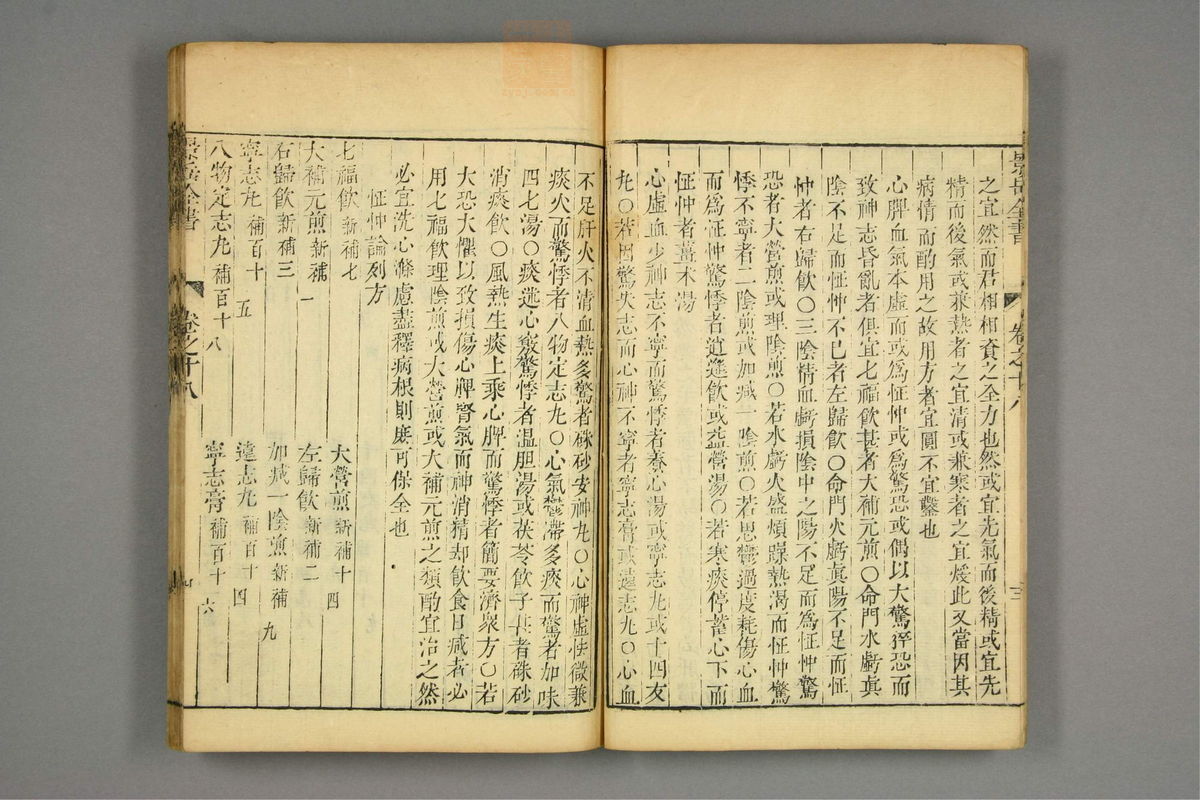 景岳全書
卷之十八
之宜然而君相相資之全力也然或宜先氣而後精或宜先
精而後氣或兼熱者之宜清或兼寒者之宜煖此又當因其
病情而酌用之故用方者宜圓不宜鑿也
心脾血氣本虛而或為怔忡或為驚恐或偶以大驚猝恐而
致神志昏亂者俱宜七福飲甚者大補元煎○命門水虧眞
陰不足而怔忡不已者左歸飲○命門火虧眞陽不足而怔
忡者右歸飲○三陰精血虧損陰中之陽不足而為怔忡驚
恐者大營煎或理陰煎○若水虧火盛煩躁熱渴而怔忡驚
悸不寧者二陰煎或加減一陰煎○若思鬱過度耗傷心血
而為怔忡驚悸者逍遙飲或益營湯○若寒痰停蓄心下而
怔忡者薑术湯
心虛血少神志不寧而驚悸者養心湯或寧志丸或十四友
丸○若因驚失志而心神不寧者寧志膏或遠志丸○心血
不足肝火不清血熱多驚者硃砂安神丸○心神虛怯微兼
痰火而驚悸者八物定志丸○心氣鬱滯多痰而驚者加味
四七湯○痰迷心竅驚悸者溫胆湯或茯苓飲子甚者硃砂
消痰飲○風熱生痰上乘心脾而驚悸者簡要濟衆方○若
大恐大懼以致損傷心脾腎氣而神消精却飲食日減者必
用七福飲理陰煎或大營煎或大補元煎之類酌宜治之然
必宜洗心滌慮盡釋病根則庶可保全也
怔忡論列方
七福飲新補七
大營煎新補十四
大補元煎新補一
左歸飲新補二
右歸飲新補三
加減一陰煎新補九
寧志丸補百十五
遠志丸補百十四
八物定志丸補百十八
寧志膏補百十六
景岳全書
卷之十八